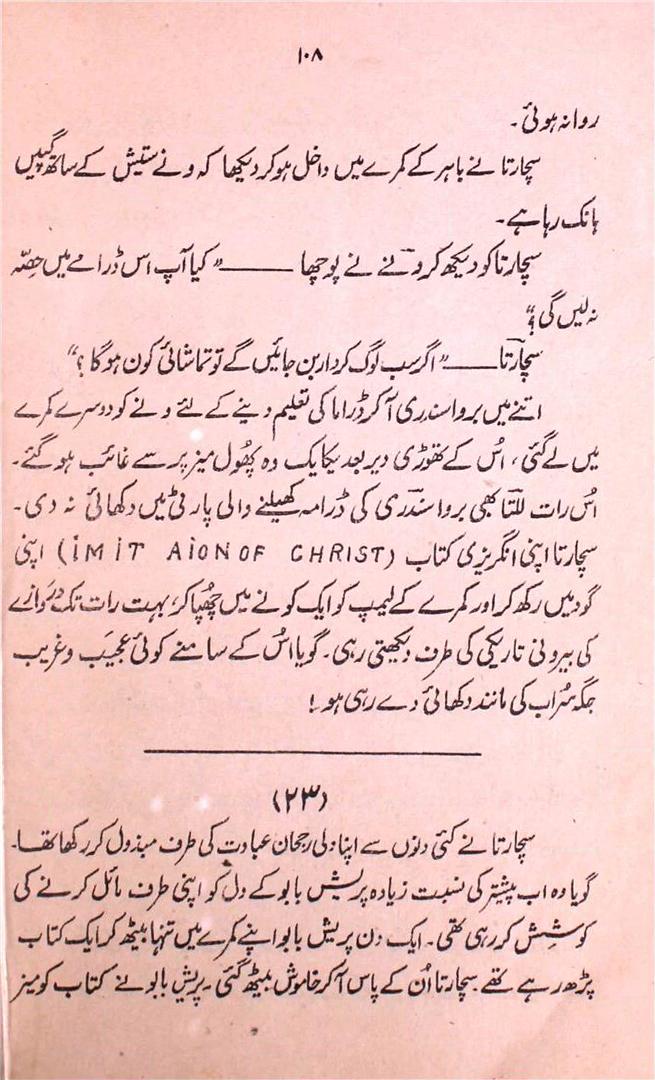 ۱۰۸
روانہ ہوئی۔
سچارتا نے باہر کے کمرے میں داخل ہو کر دیکھا کہ ونے ستیش کے ساتھ گپیں
ہانک رہا ہے۔
سچارتا کو دیکھ کر ونے نے پوچھا ——— "کیا آپ اس ڈرامے میں حصّہ
نہ لیں گی؟"
سچارتا ——— "اگر سب لوگ کردار بن جائیں گے تو تماشائی کون ہوگا؟"
اتنے میں بروا سندری آ کر ڈراما کی تعلیم دینے کے لئے ونے کو دوسرے کمرے
میں لے گئی، اُس کے تھوڑی دیر بعد یکایک وہ پھُول میز پر سے غائب ہو گئے۔
اُس رات للتا بھی بروا سندری کی ڈرامہ کھیلنے والی پارٹی میں دکھائی نہ دی۔
سچارتا اپنی انگریزی کتاب (IMIT AION OF CHRIST) اپنی
گود میں رکھ کر اور کمرے کے لیمپ کو ایک کونے میں چھُپا کر، بہت رات تک دروازے
کی بیرونی تاریکی کی طرف دیکھتی رہی۔ گویا اُس کے سامنے کوئی عجیب و غریب
جگہ سَراب کی مانند دکھائی دے رہی ہو!
(۲۳)
سچارتا نے کئی دنوں سے اپنا دلی رجحان عبادت کی طرف مبذول کر رکھا تھا۔
گویا وہ اب پیشتر کی نسبت زیادہ پریش بابو کے دل کو اپنی طرف مائل کرنے کی
کوشِش کر رہی تھی۔ ایک دن پریش بابو اپنے کمرے میں تنہا بیٹھ کر ایک کتاب
پڑھ رہے تھے۔ سچارتا اُن کے پاس آ کر خاموش بیٹھ گئی۔ پریش بابو نے کتاب کو میز